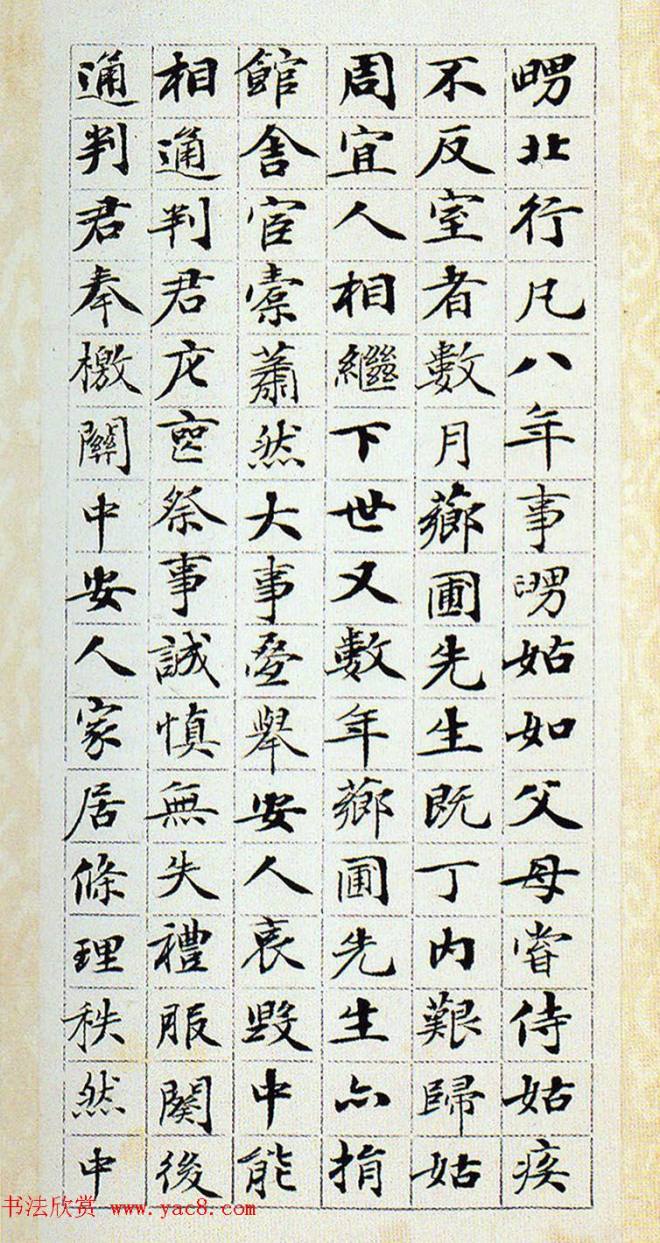 甥北行凡八年事甥姑如父母嘗侍姑疾
不反室者數月薌圃先生既丁內艱歸姑
周宜人相繼下世又數年薌圃先生亦捐
館舍宦橐蕭然大事疊舉安人哀毀中能
相通判君庀喪祭事誠慎無失禮服闋後
通判君奉檄關中安人家居條理秩然中
书法欣赏 www.yac8.com